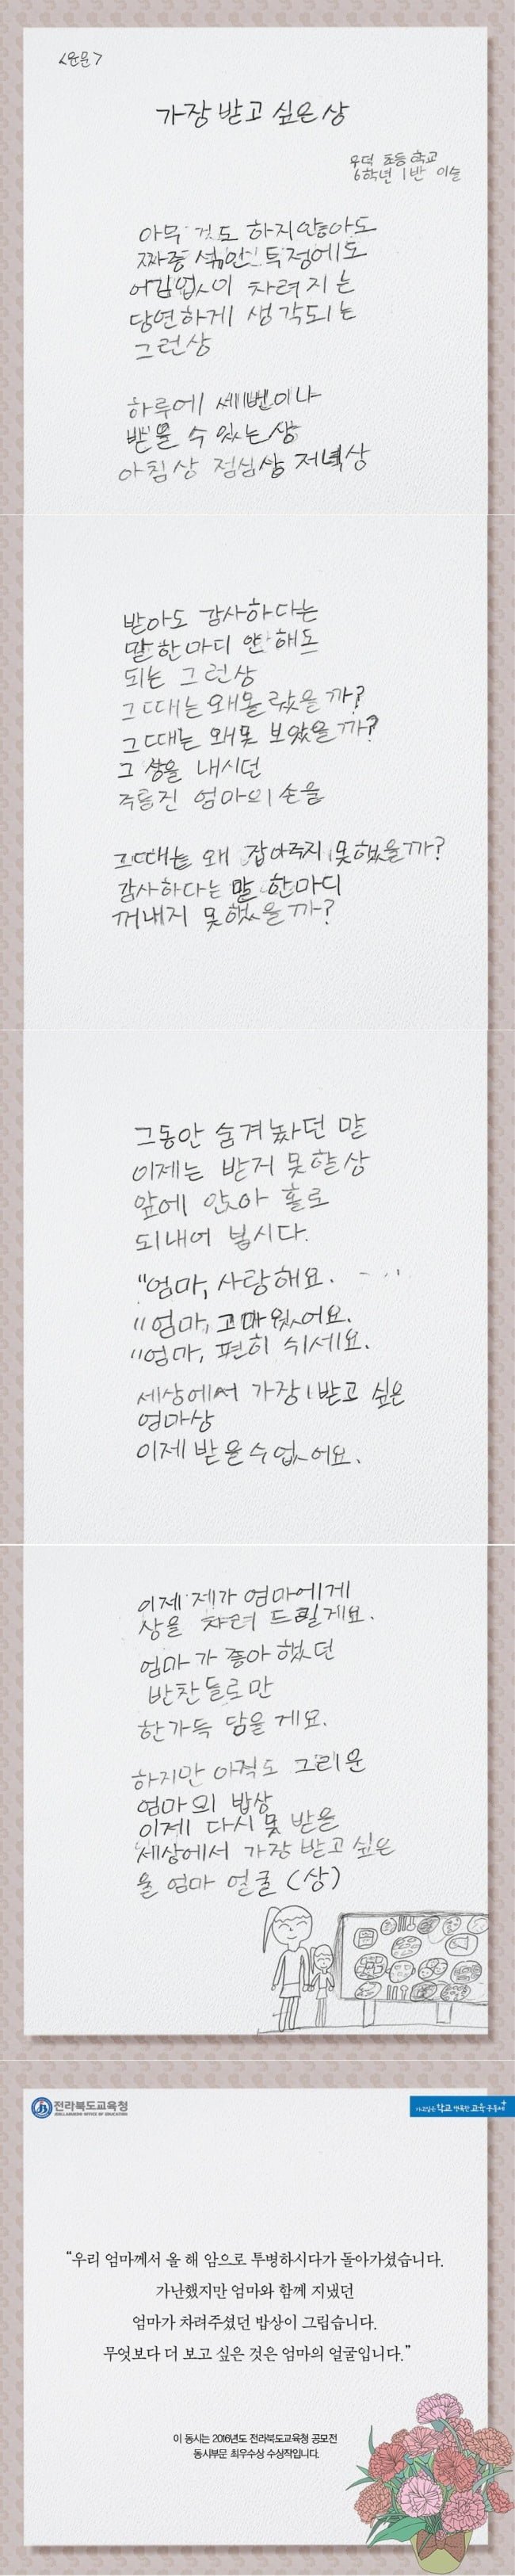 <운문>
가장 받고 싶은 상
우덕 초등학교
6학년 1반 이슬
아무 것도 하지않아도
짜증 섞인 투정에도
어김없이 차려지는
당연하게 생각되는
그런상
하루에 세번이나
받을 수 있는 상
아침상 점심상 저녁상
받아도 감사하다는
말 한마디 안 해도
되는 그런상
그때는 왜몰랐을까?
그때는 왜못 보았을까?
그 상을 내시던
주름진 엄마의 손을
그때는 왜 잡아주지 못했을까?
감사하다는 말 한마디
꺼내지 못했을까?
그동안 숨겨놨던 말
이제는 받거 못할상
앞에 앉아 홀로
되내어 봅시다.
"엄마, 사랑해요.
"엄마, 고마웠어요.
"엄마, 편히 쉬세요.
세상에서 가장 받고 싶은
엄마상
이제 받을수없어요.
이제 제가 엄마에게
상을 차려 드릴게요.
엄마가 좋아했던
반찬들로만
한가득 담을게요.
하지만 아직도 그리운
엄마의 밥상
이제 다시 못 받을
세상에서 가장 받고 싶은
울 엄마 얼굴 (상)
전라북도교육청
JEOLLABUKDO OFFICE OF EDUCATION
가고싶은 학교 행복한 교육공동체
"우리 엄마께서 올 해 암으로 투병하시다가 돌아가셨습니다.
가난했지만 엄마와 함께 지냈던
엄마가 차려주셨던 밥상이 그립습니다.
무엇보다 더 보고 싶은 것은 엄마의 얼굴입니다."
이 동시는 2016년도 전라북도교육청 공모전
동시부문 최우수상 수상작입니다.